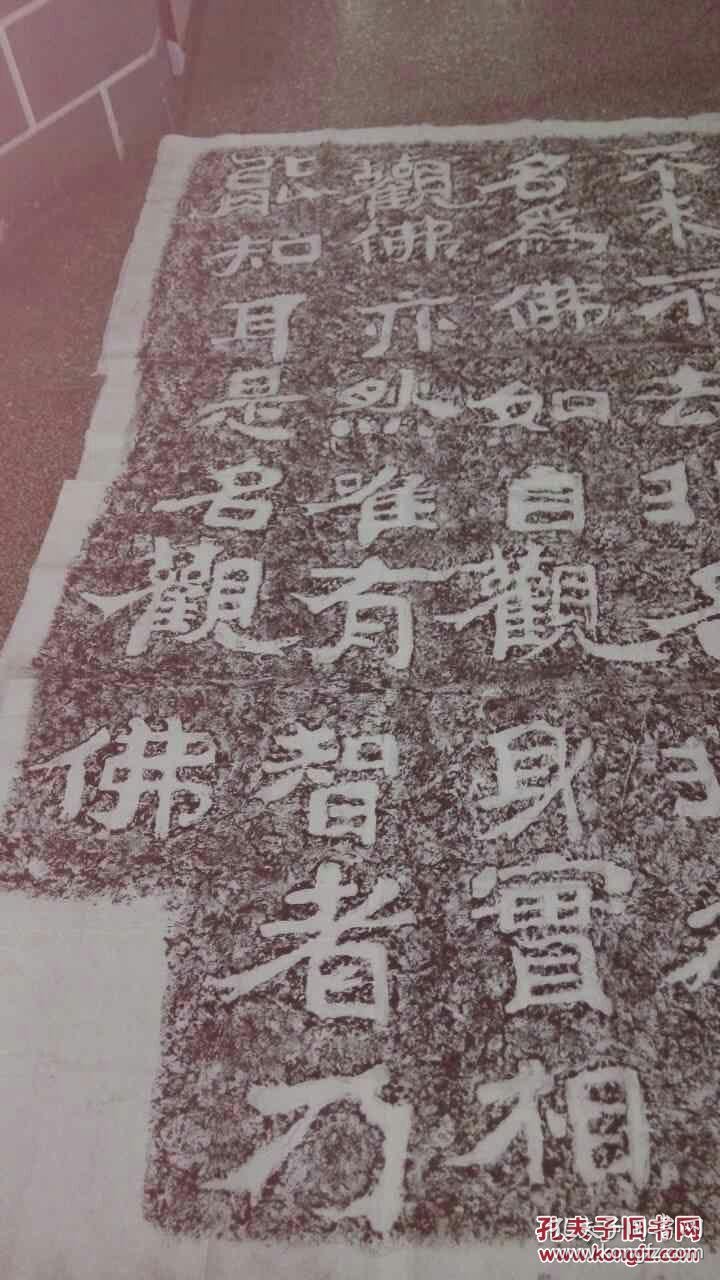 不来不去非名非
名為佛如自觀身實相
觀佛亦然唯有智者乃
能知耳是名觀佛
孔夫子旧书网
www.kongfz.com